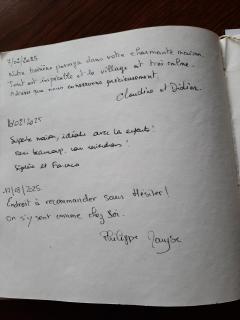 7/02/2025
Notre troisième passage dans votre charmante maison
Tout est impeccable et le village est très calme.
Adresse que nous conserverons précieusement.
Claudine et Didier.
16/08/2025
Superbe maison, idéale avec les enfants!
merci beaucoup, nous reviendrons!
et
17/08/2025.
Endroit à recommander sans Hésiter!
On s'y sent comme chez Soi.
Philippe